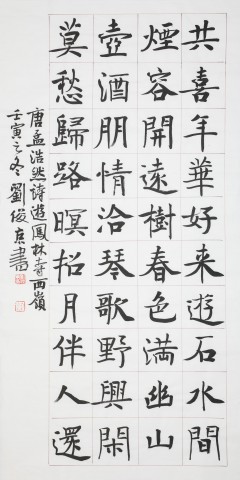 共喜年華好来遊石水間
煙容開遠樹春色満幽山
壺酒朋情洽琴歌野興閑
莫愁歸路暝招月伴人還
唐孟浩然詩遊鳳林寺西嶺
壬寅之冬劉俊京書